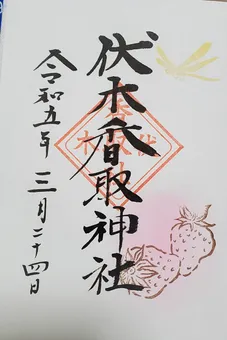 伏木香取神社
令和五年三月二十四日